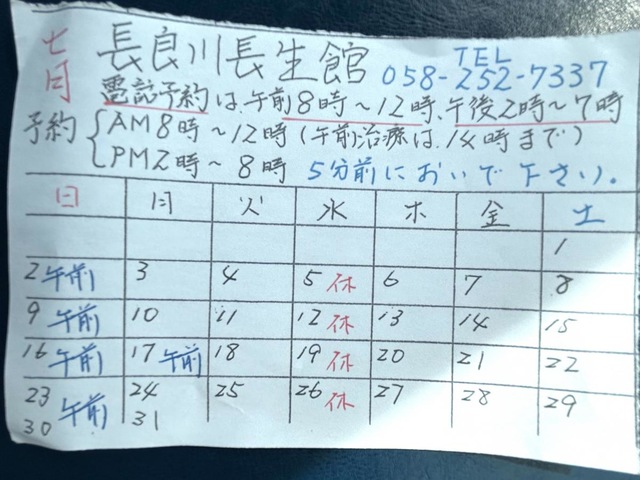 七月 長良川長生館 TEL 058-252-7337
電話予約は、午前8時～12時、午後2時～7時
予約 AM8時～12時(午前治療は、14時まで)
PM2時～8時 5分前においで下さい。
日 月 火 水 木 金 土
1
2午前 3 4 5休 6 7 8
9午前 10 11 12休 13 14 15
16午前 17午前 18 19休 20 21 22
23 午前 24 25 26休 27 28 29
30 31